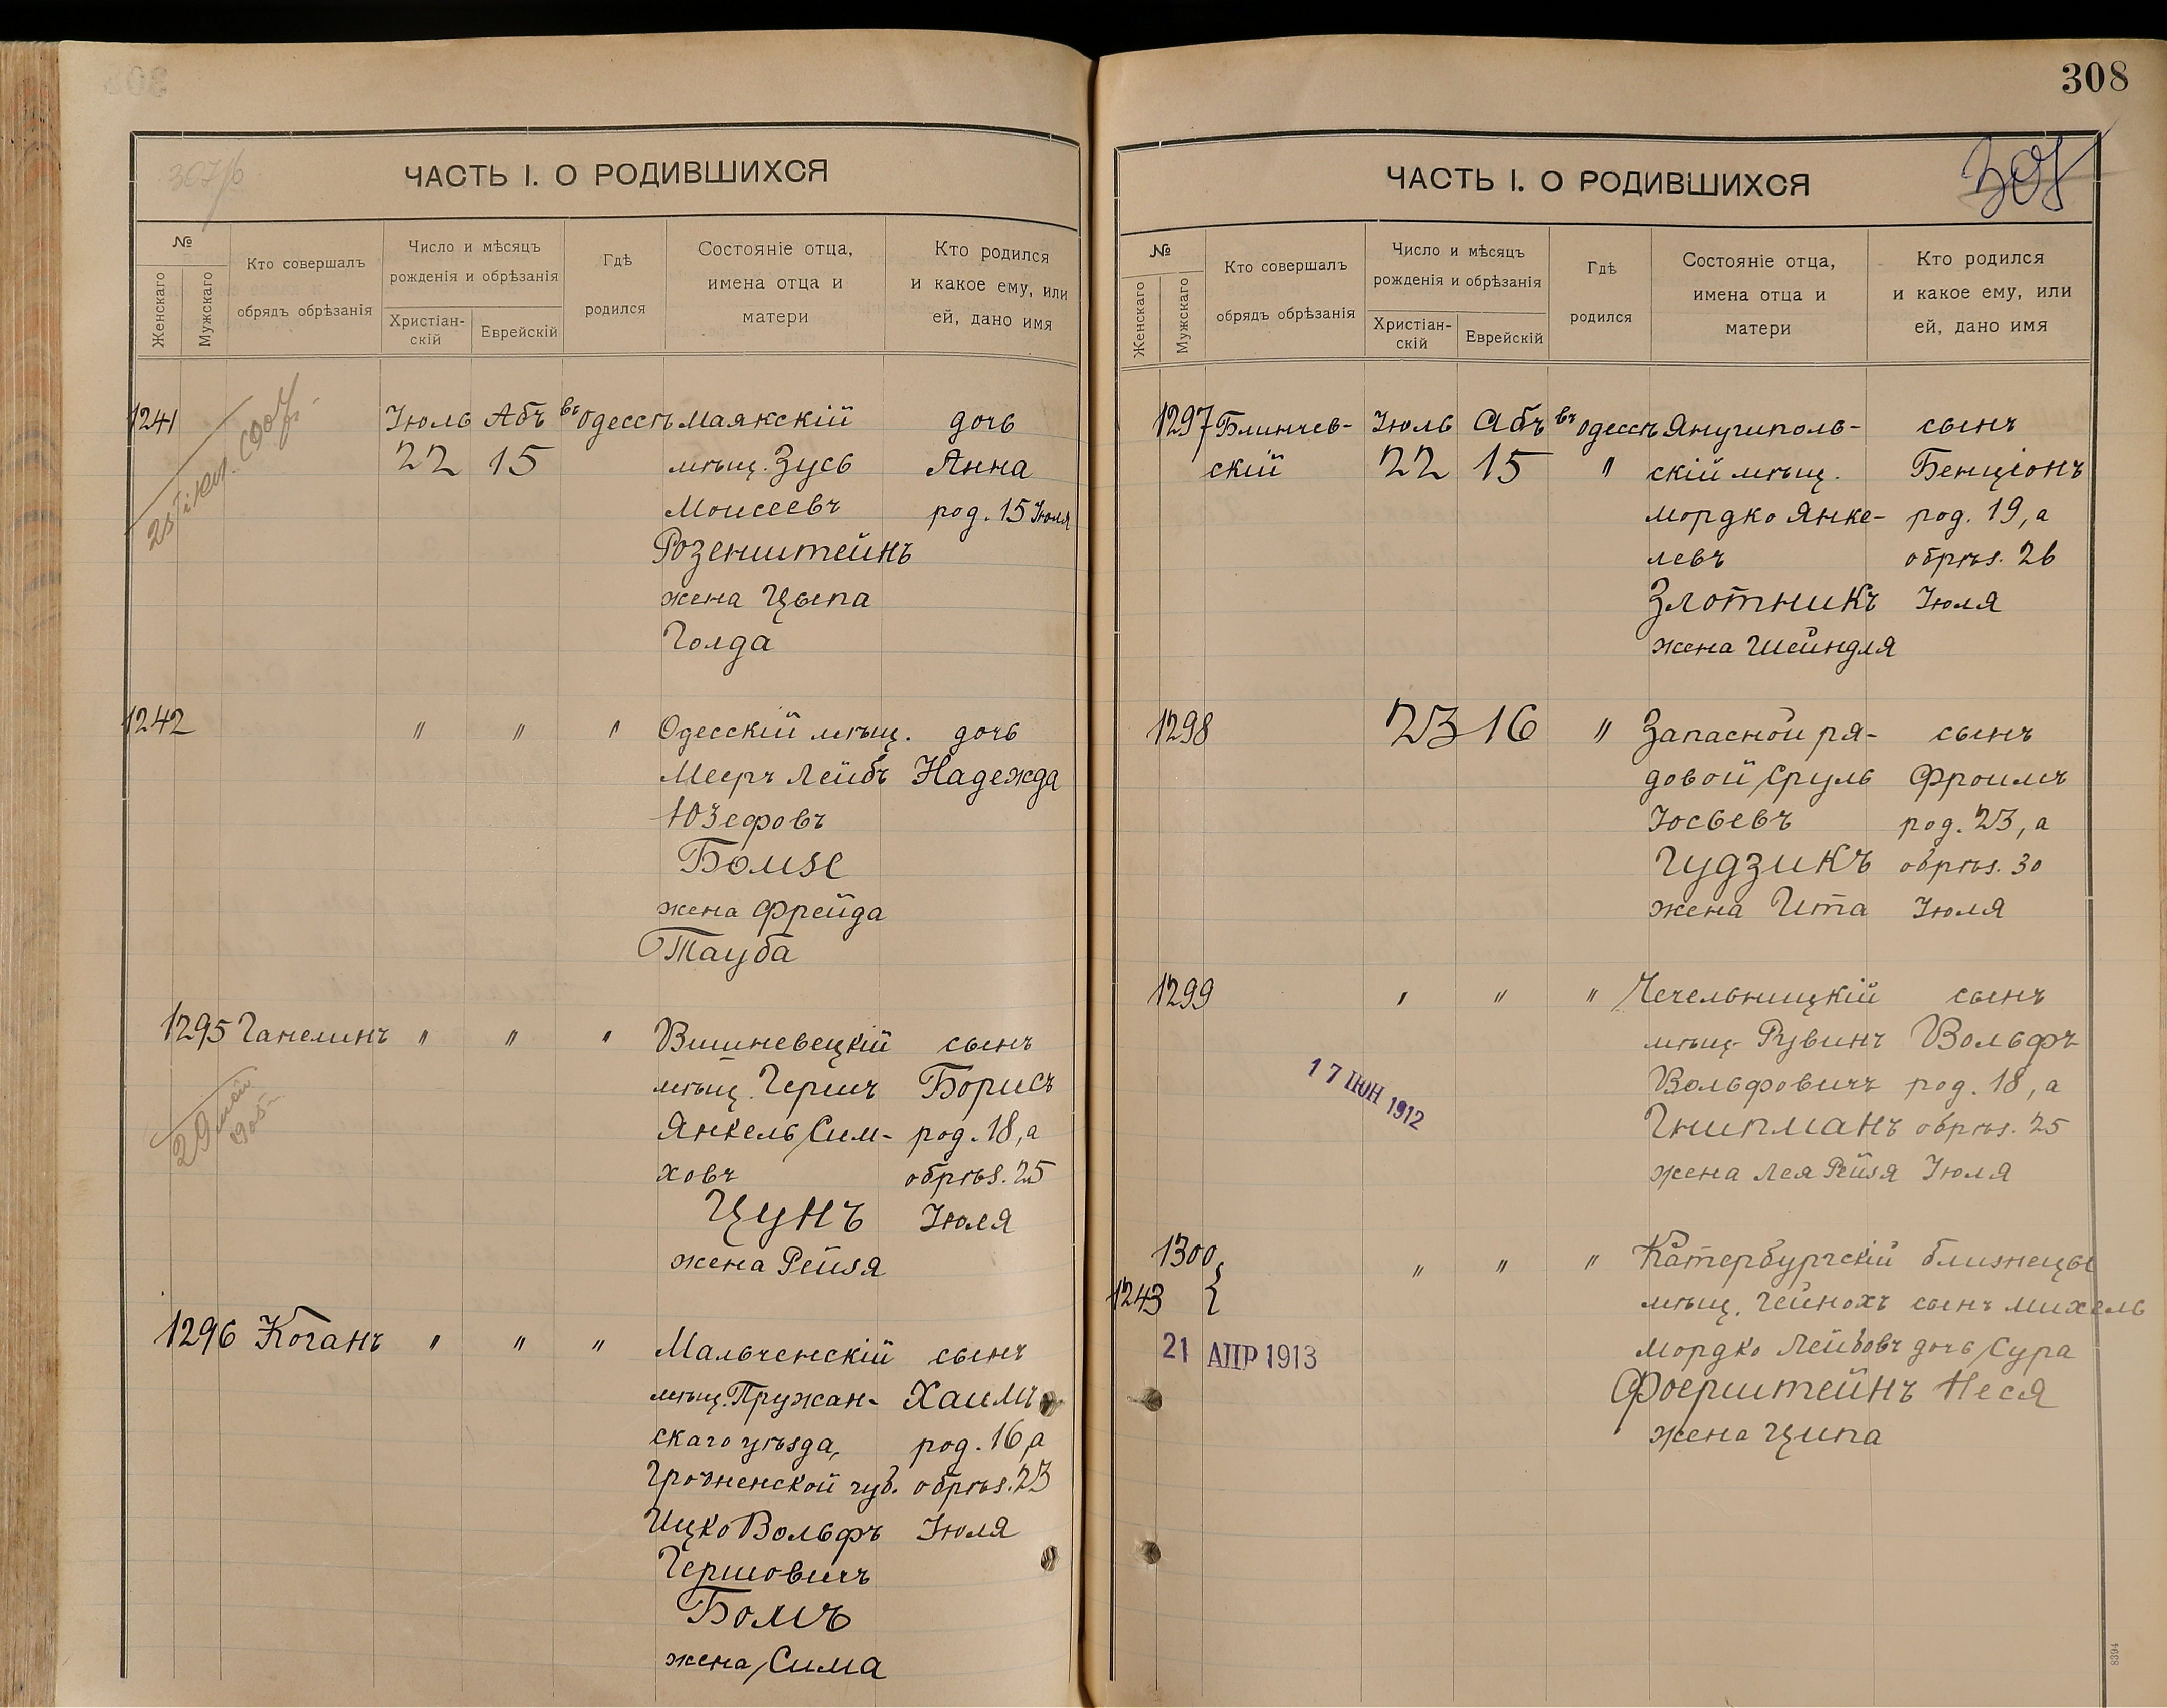 308
ЧАСТЬ I. О РОДИВШИХСЯ
№
Женскаго
Мужскаго
Кто совершалъ
обрядъ обрѣзанія
Число и мѣсяцъ
рожденія и обрѣзанія
Христіан-
скій
Еврейскій
Гдѣ
родился
Состояніе отца,
имена отца и
матери
Кто родился
и какое ему, или
ей, дано имя
1241 Іюль Абъ въ Одессѣ Маякскій дочь
22 15 мѣщ. Зусь Анна
Моисеевъ род. 15 Іюля
Розенштейнъ
жена Цыпа
Голда
1242 " " " Одесскій мѣщ. дочь
Мееръ Лейбъ Надежда
Юзефовъ
Бомзе
жена Фрейда
Тауба
1295 Ганелинъ " " " Вишневецкій сынъ
мѣщ. Гершъ Борисъ
Янкель Сим- род. 18, а
29 мая
1905
ховъ обрѣз. 25
Цунъ Іюля
жена Рейзя
1296 Коганъ " " " Мальченскій сынъ
мѣщ. Пружан- Хаимъ
скаго уѣзда, род. 16, а
Гродненской губ. обрѣз. 23
Ицко Вольфъ Іюля
Гершовичъ
Бомъ
жена Сима
ЧАСТЬ I. О РОДИВШИХСЯ
№
Женскаго
Мужскаго
Кто совершалъ
обрядъ обрѣзанія
Число и мѣсяцъ
рожденія и обрѣзанія
Христіан-
скій
Еврейскій
Гдѣ
родился
Состояніе отца,
имена отца и
матери
Кто родился
и какое ему, или
ей, дано имя
1297 Блинчев- Іюль Абъ въ Одессѣ Янушполь- сынъ
скій 22 15 " скій мѣщ. Бенціонъ
Мордко Янке- род. 19, а
левъ обрѣз. 26
Злотникъ Іюля
жена Шейндля
1298 23 16 " Запасной ря- сынъ
довой Сруль Фроимъ
Іосьевъ род. 23, а
Гудзикъ обрѣз. 30
жена Ита Іюля
1299 " " " Чечельницкій сынъ
мѣщ. Рувинъ Вольфъ
17 ІЮН 1912
Вольфовичъ род. 18, а
Гнипманъ обрѣз. 25
жена Лея Рейзя Іюля
1300 " " " Катербургскій близнецы
1243 мѣщ. Гейнохъ сынъ Михель
21 АПР 1913
Мордко Лейбовъ дочь Сура
Фоерштейнъ Неся
жена Ципа
8394